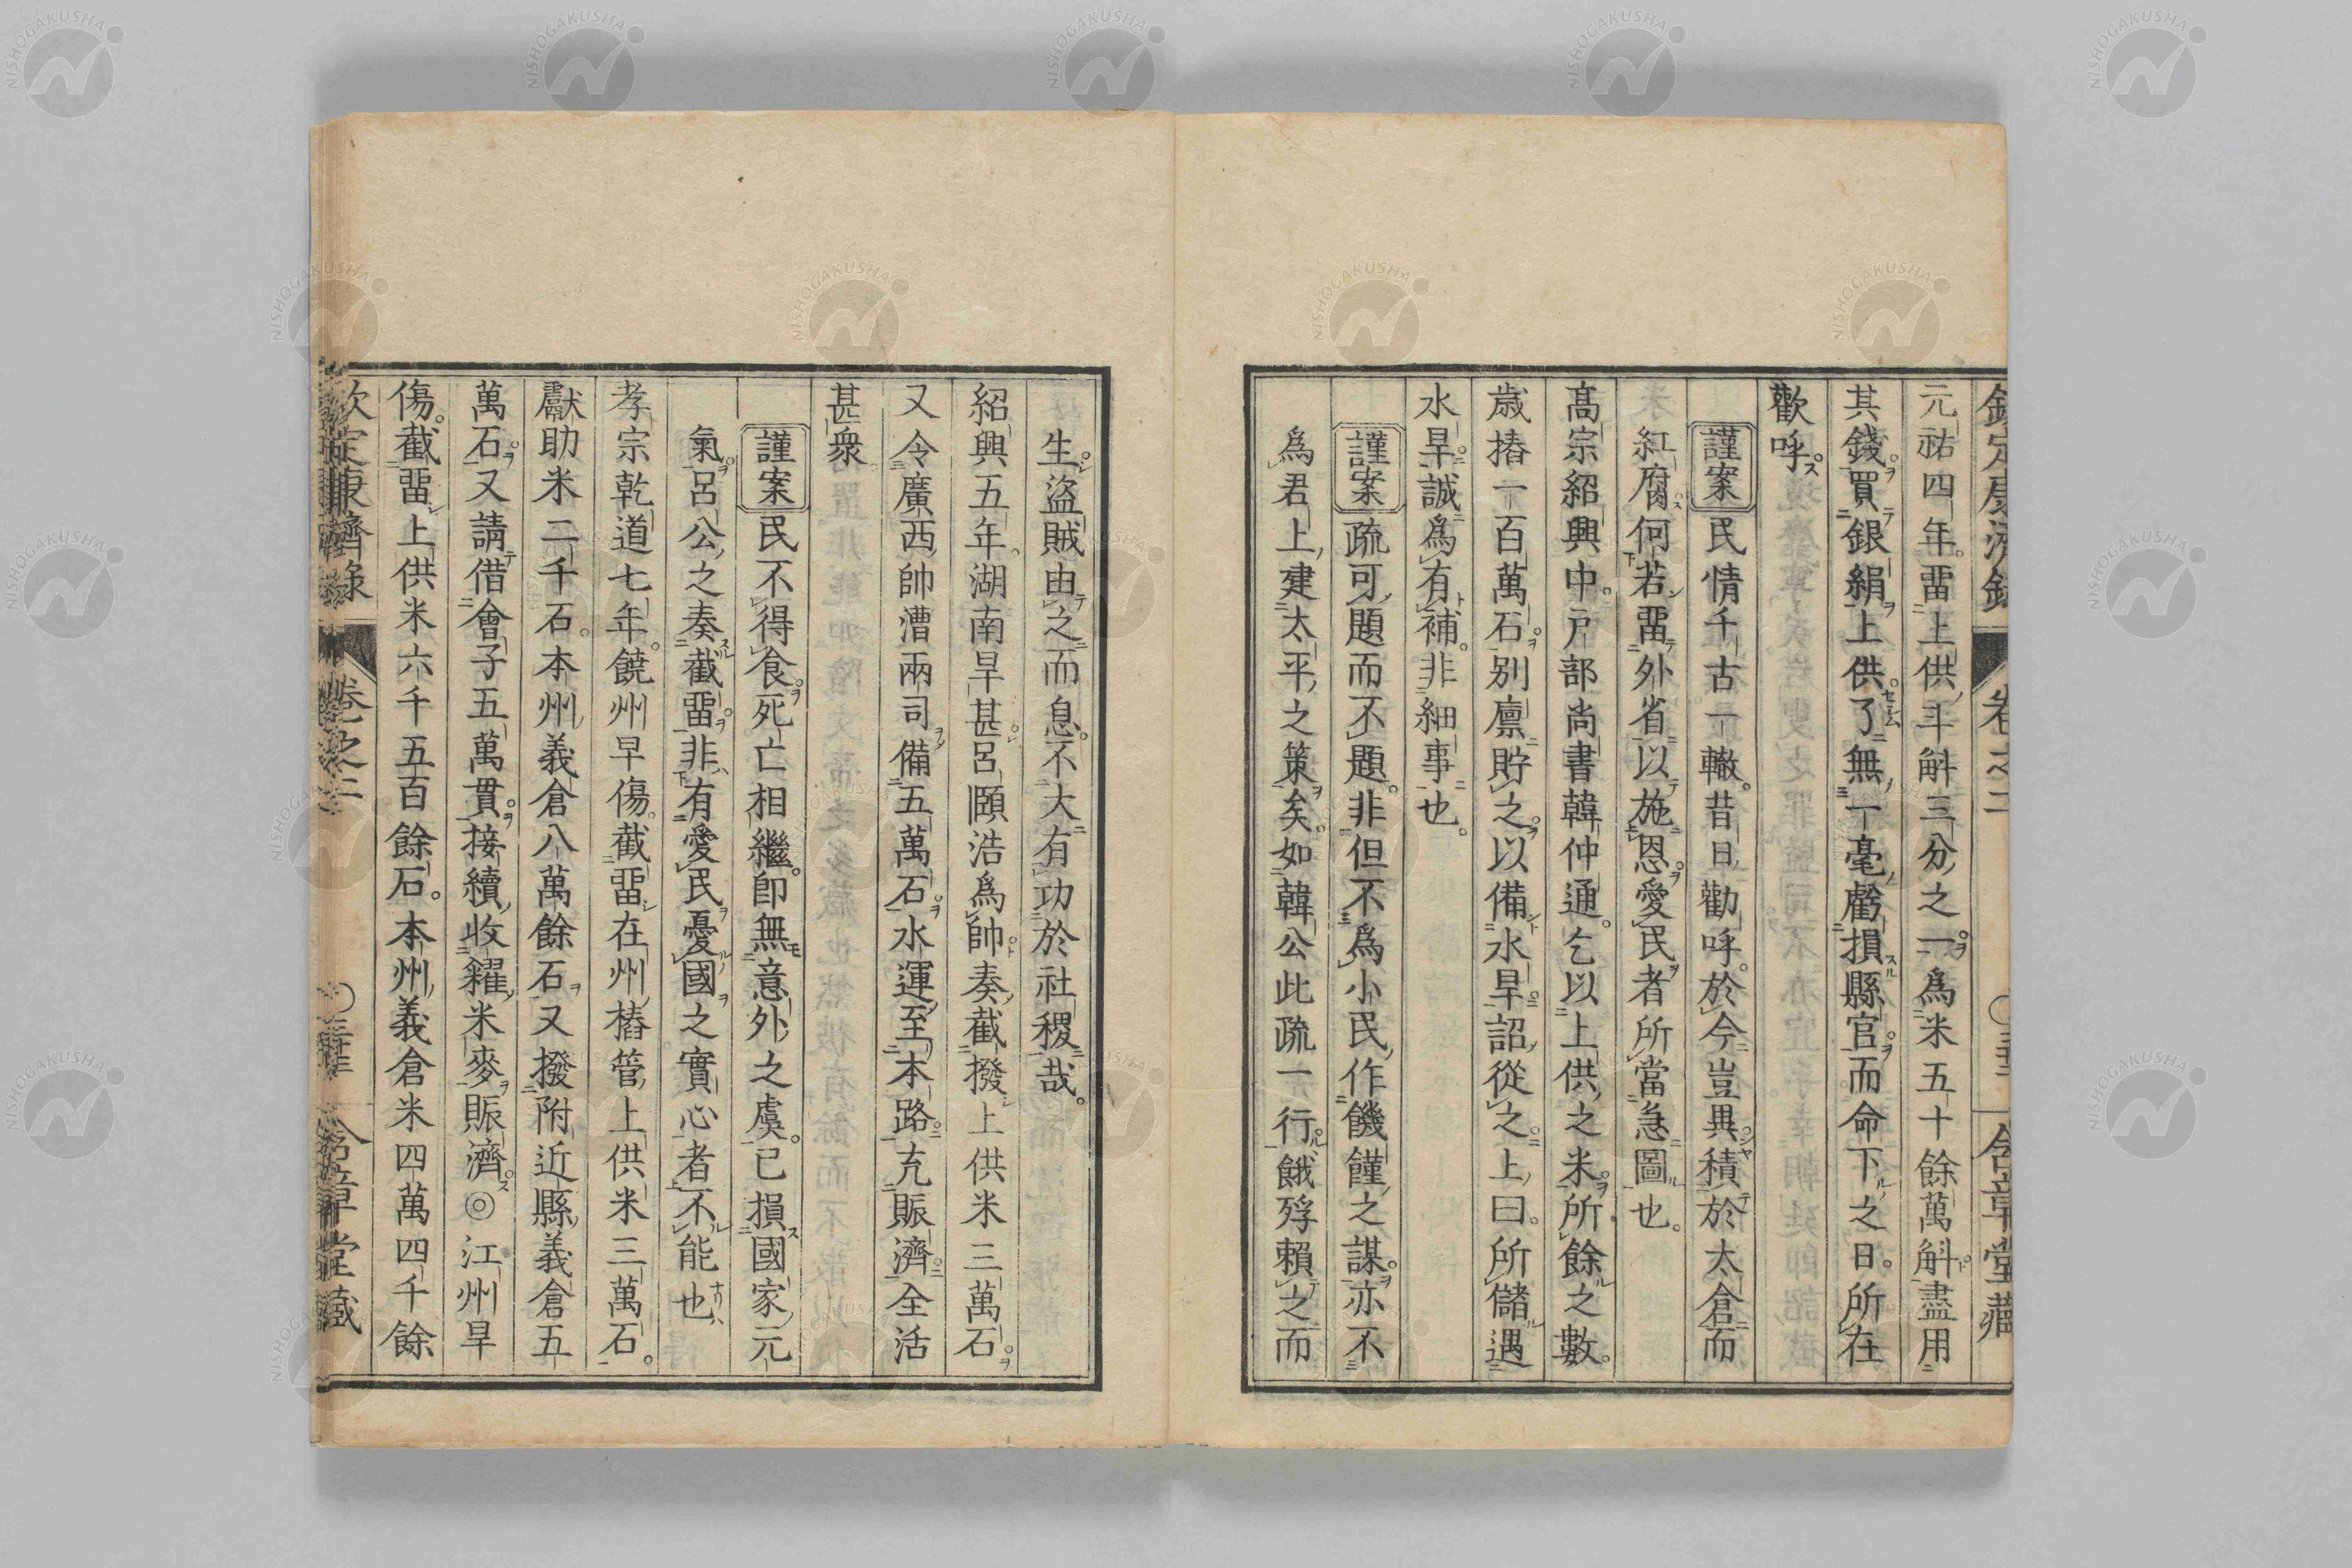 欽定康濟録 卷之二 含章堂藏
元祐四年畱上供斗斛三分之一爲米五十餘萬斛盡用
其錢買銀絹上供了無一毫虧損縣官而命下之日所在
歡呼
謹案民情千古一轍昔日勸呼於今豈異積於太倉而
紅腐何若畱外省以施恩愛民者所當急圖也
高宗紹興中戸部尚書韓仲通乞以上供之米所餘之數
歳樁一百萬石別廪貯之以備水旱詔從之上曰所儲遇
水旱誠爲有補非細事也
謹案疏可題而不題非但不爲小民作饑饉之謀亦不
爲君上建太平之策矣如韓公此疏一行餓殍賴之而
生盜賊由之而息不大有功於社稷哉
紹興五年湖南旱甚呂頤浩爲帥奏截撥上供米三萬石
又令廣西帥漕兩司備五萬石水運至本路充賑濟全活
甚衆
謹案民不得食死亡相繼即無意外之虞已損國家元
氣呂公之奏截畱非有愛民憂國之實心者不能也
孝宗乾道七年饒州旱傷截畱在州樁管上供米三萬石
獻助米二千石本州義倉八萬餘石又撥附近縣義倉五
萬石又請借會子五萬貫接續收糴米麥賑濟◎江州旱
傷截畱上供米六千五百餘石本州義倉米四萬四千餘
欽定康濟録 卷之二 含章堂藏